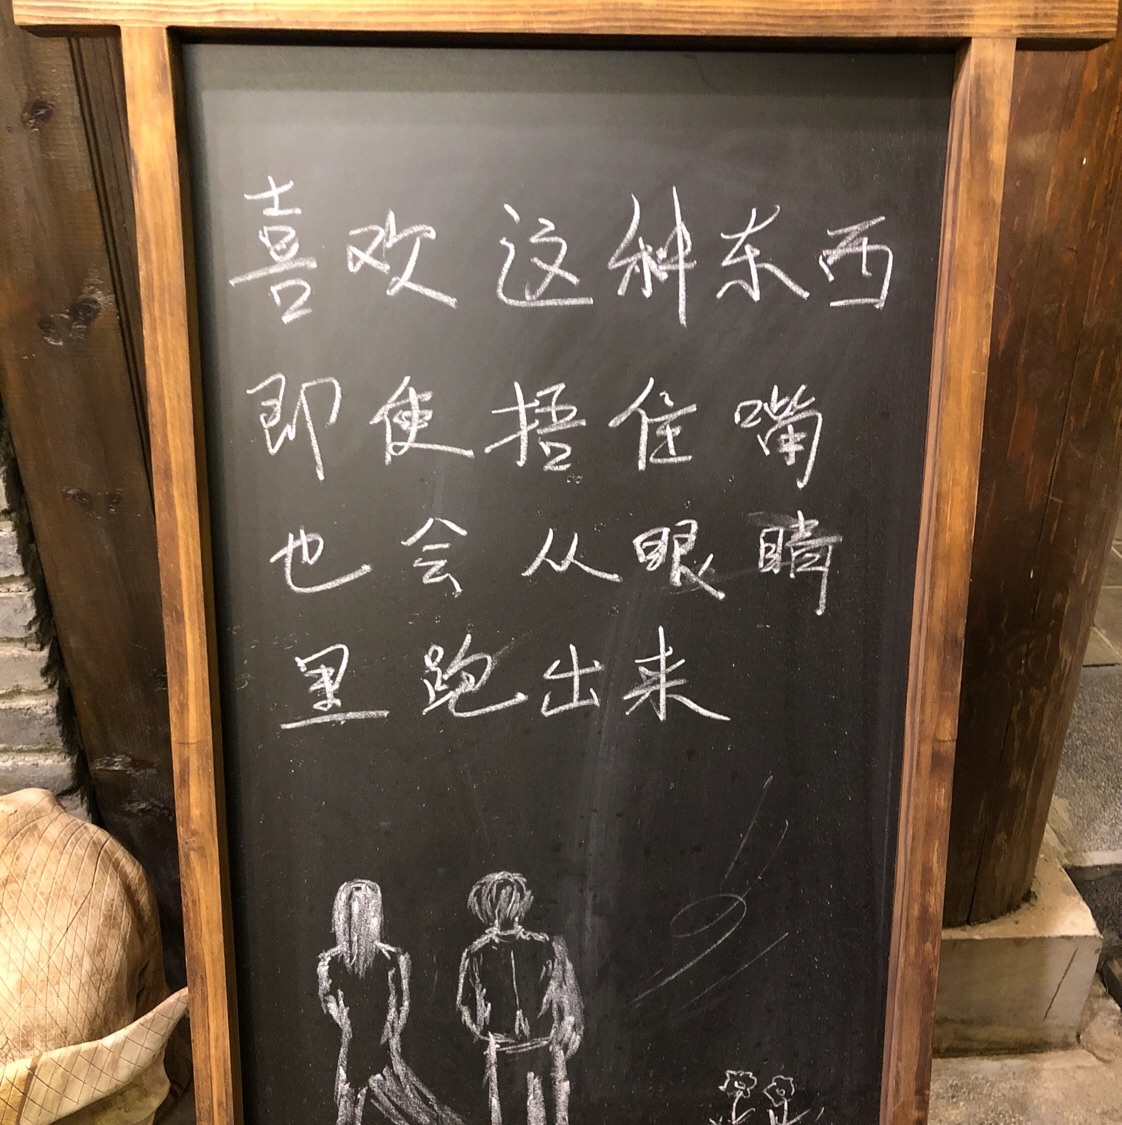 喜欢这种东西
即使捂住嘴
也会从眼睛
里跑出来